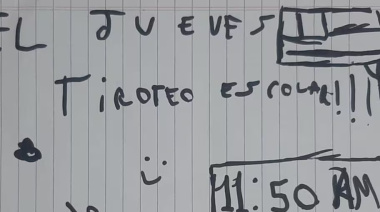 EL JUEVES
TIROTEO ESCOLAR!!!
:)
11:50 AM